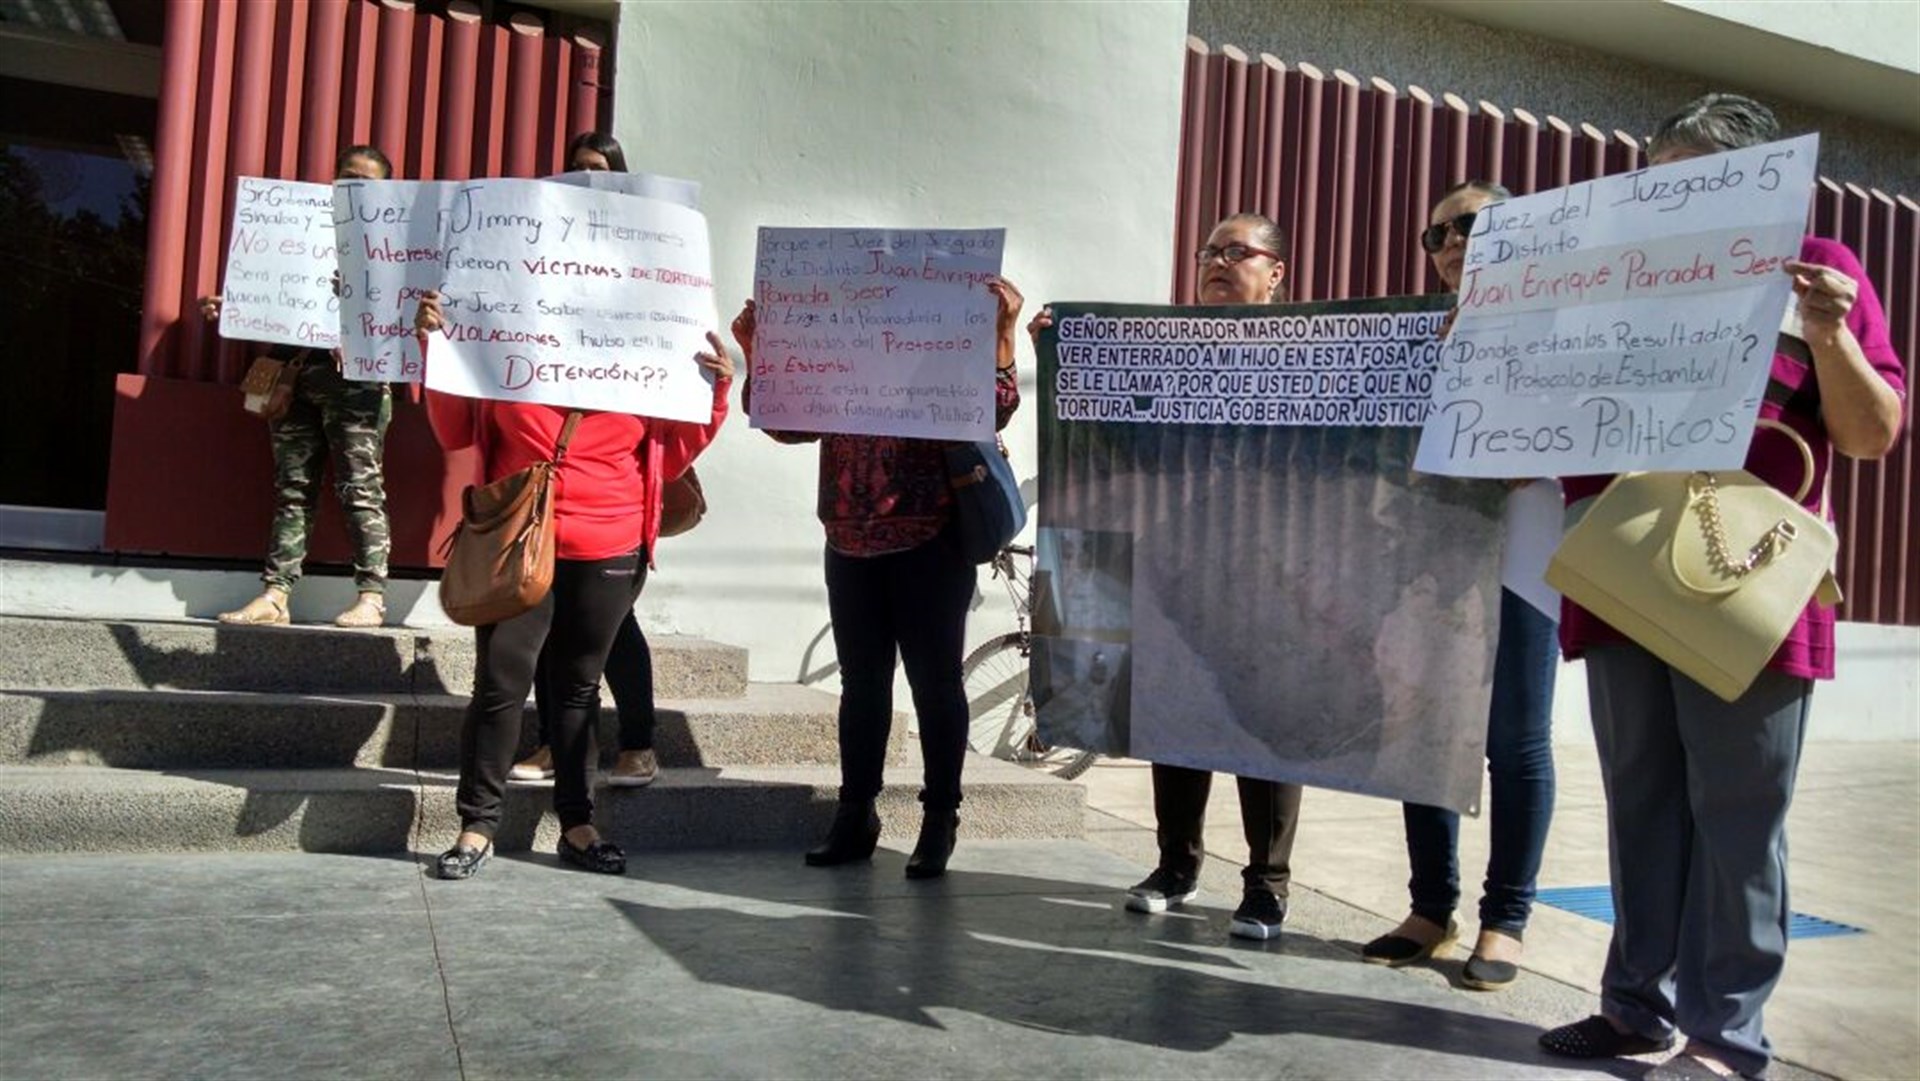 Sr. Gobernad
Sinaloa y
No es un
Será por e
hacen Caso
Pruebas Ofrec
Juez
Interese
le
Prueba
qué le
Jimmy y Hermes
fueron VÍCTIMAS DE TORTURA
Sr Juez Sabe
VIOLACIONES hubo en la
DETENCIÓN??
Porque el Juez del Juzgado
5° de Distrito Juan Enrique
Parada Seer
No Exige a la Procuraduria los
Resultados del Protocolo
de Estambul
¿El Juez esta comprometido
con algun funcionario Público?
SEÑOR PROCURADOR MARCO ANTONIO HIGU
VER ENTERRADO A MI HIJO EN ESTA FOSA ¿CO
SE LE LLAMA? POR QUE USTED DICE QUE NO
TORTURA... JUSTICIA GOBERNADOR JUSTICIA
Juez del Juzgado 5°
de Distrito
Juan Enrique Parada Seer
¿Donde estan los Resultados
de el Protocolo de Estambul?
Presos Politicos